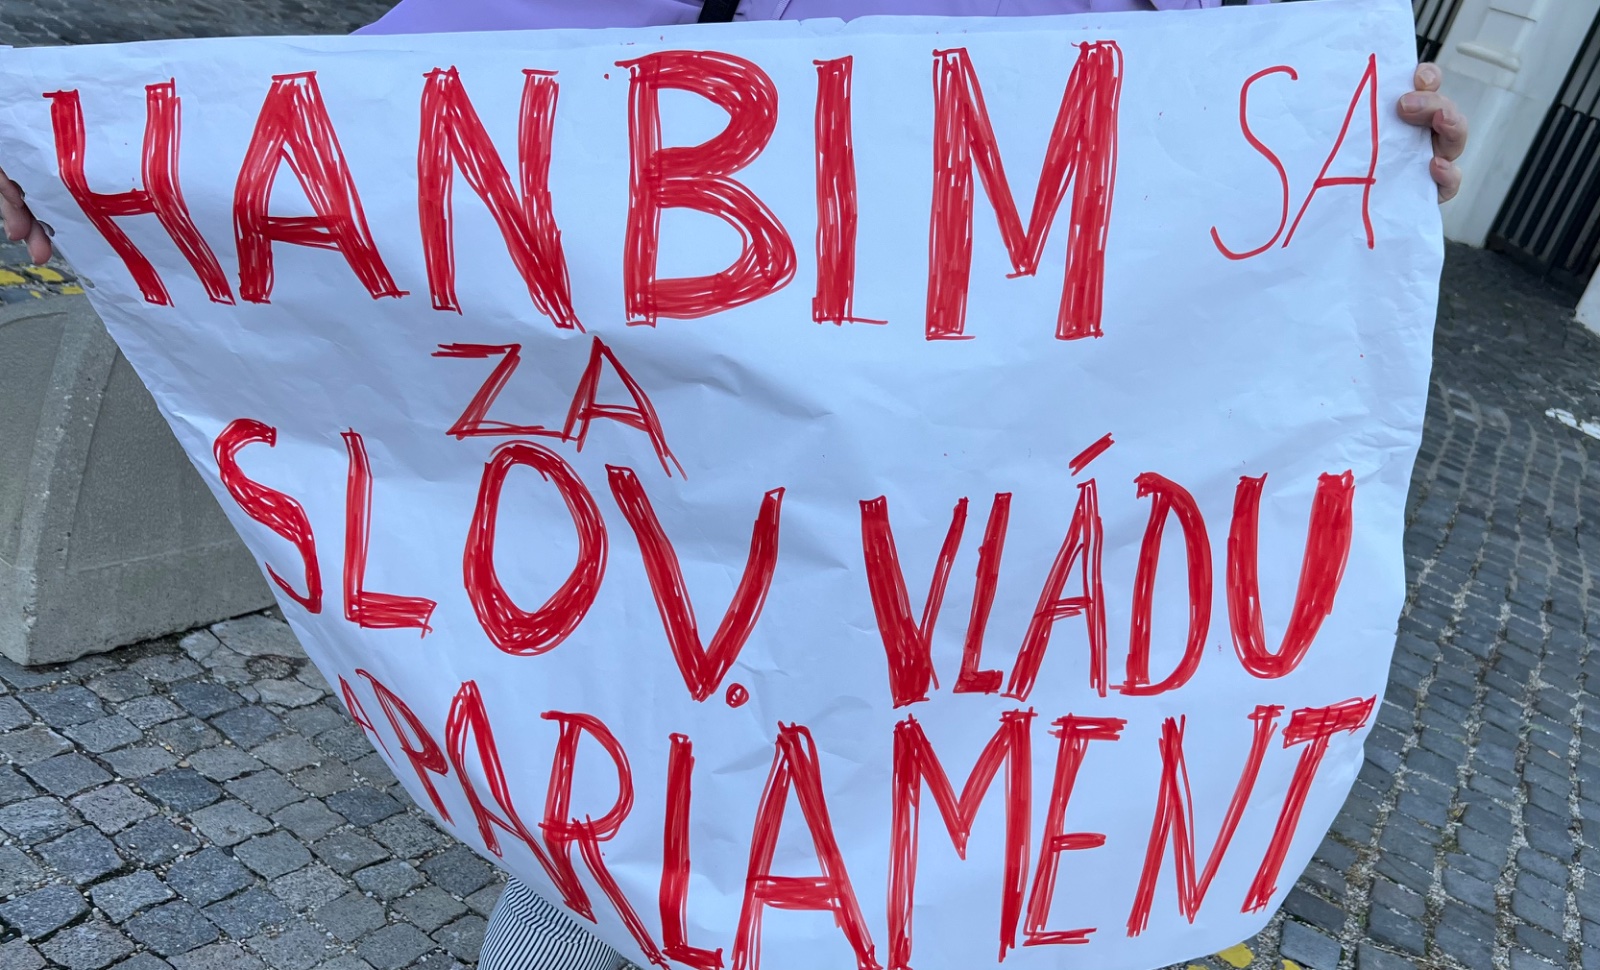 HANBIM SA
ZA
SLOV. VLÁDU
A PARLAMENT